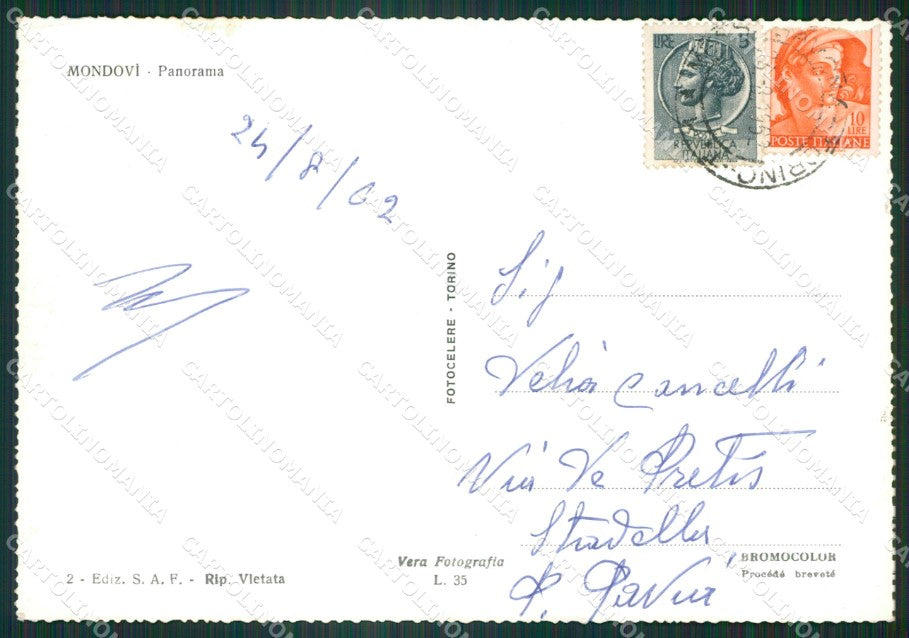 MONDOVÌ - Panorama
LIRE 5
REPVBBLICA
ITALIANA
10
LIRE
POSTE ITALIANE
TORINO
24/8/62
FOTOCELERE - TORINO
Sig
Velia Cancelli
Via De Pretis
Stradella
P. Pavia
BROMOCOLOR
Procédé breveté
Vera Fotografia
L. 35
2 - Ediz. S. A. F. - Rip. Vietata
CARTOLINOMANIA